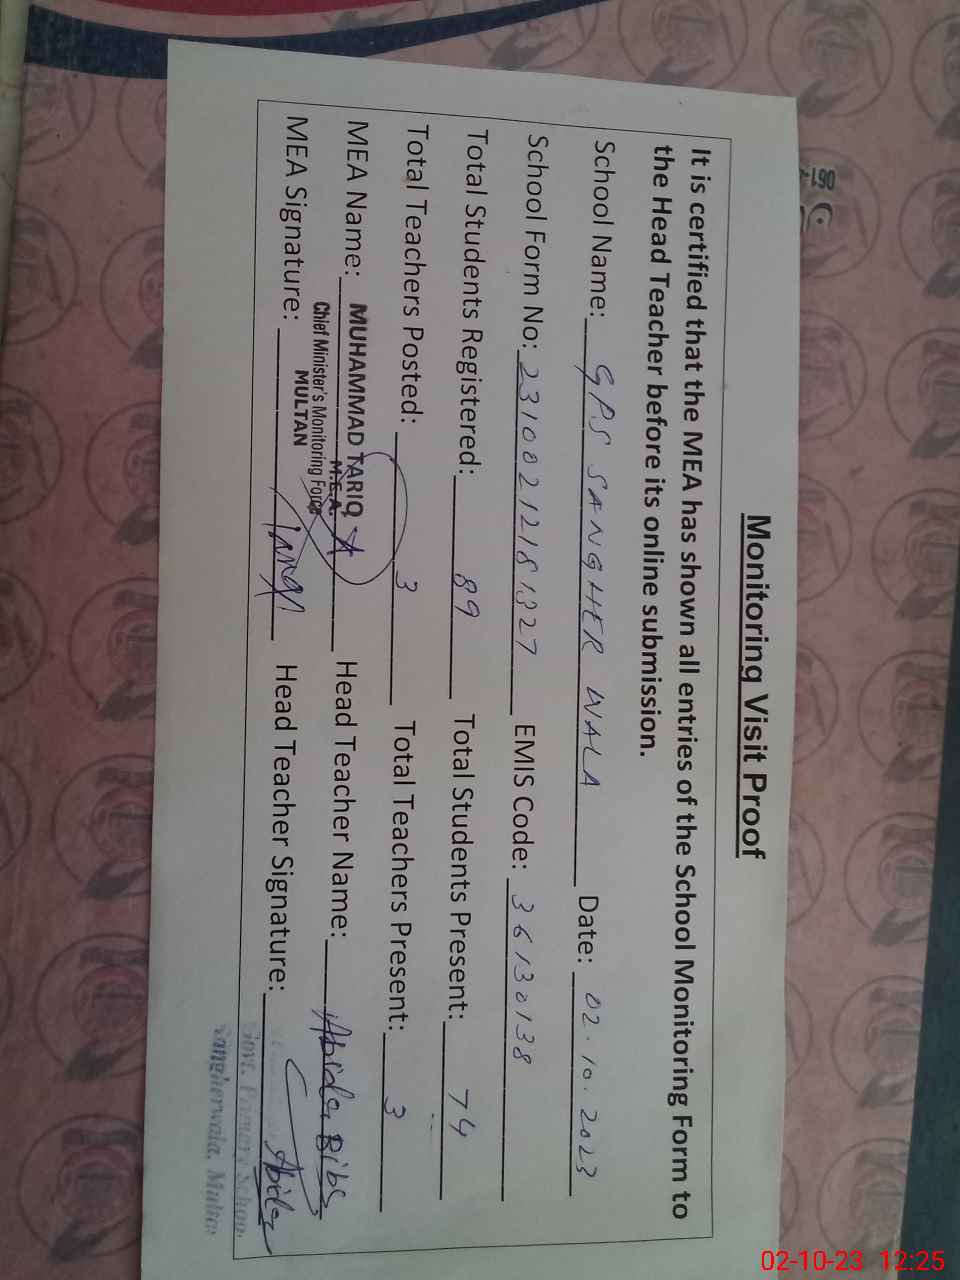 Monitoring Visit Proof
It is certified that the MEA has shown all entries of the School Monitoring Form to
the Head Teacher before its online submission.
School Name: GPS SANGHER WALA Date: 02.10.2023
School Form No: 231002121818327 EMIS Code: 36130138
Total Students Registered: 89 Total Students Present: 74
Total Teachers Posted: 3 Total Teachers Present: 3
MEA Name: MUHAMMAD TARIQ Head Teacher Name: Abida Bibi
M.E.A.
Chief Minister's Monitoring Force
MULTAN
MEA Signature: Tariq Head Teacher Signature: Abida
Govt. Primary School
Sangherwala, Multan
02-10-23 12:25